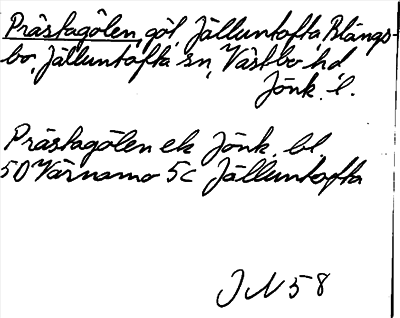 Prästagölen, göl, Jälluntofta, Blängs-
bo, Jälluntofta sn, Västbo hd
Jönk. l.
Prästagölen ek Jönk. bl
50 Värnamo 5c Jälluntofta
JN 58